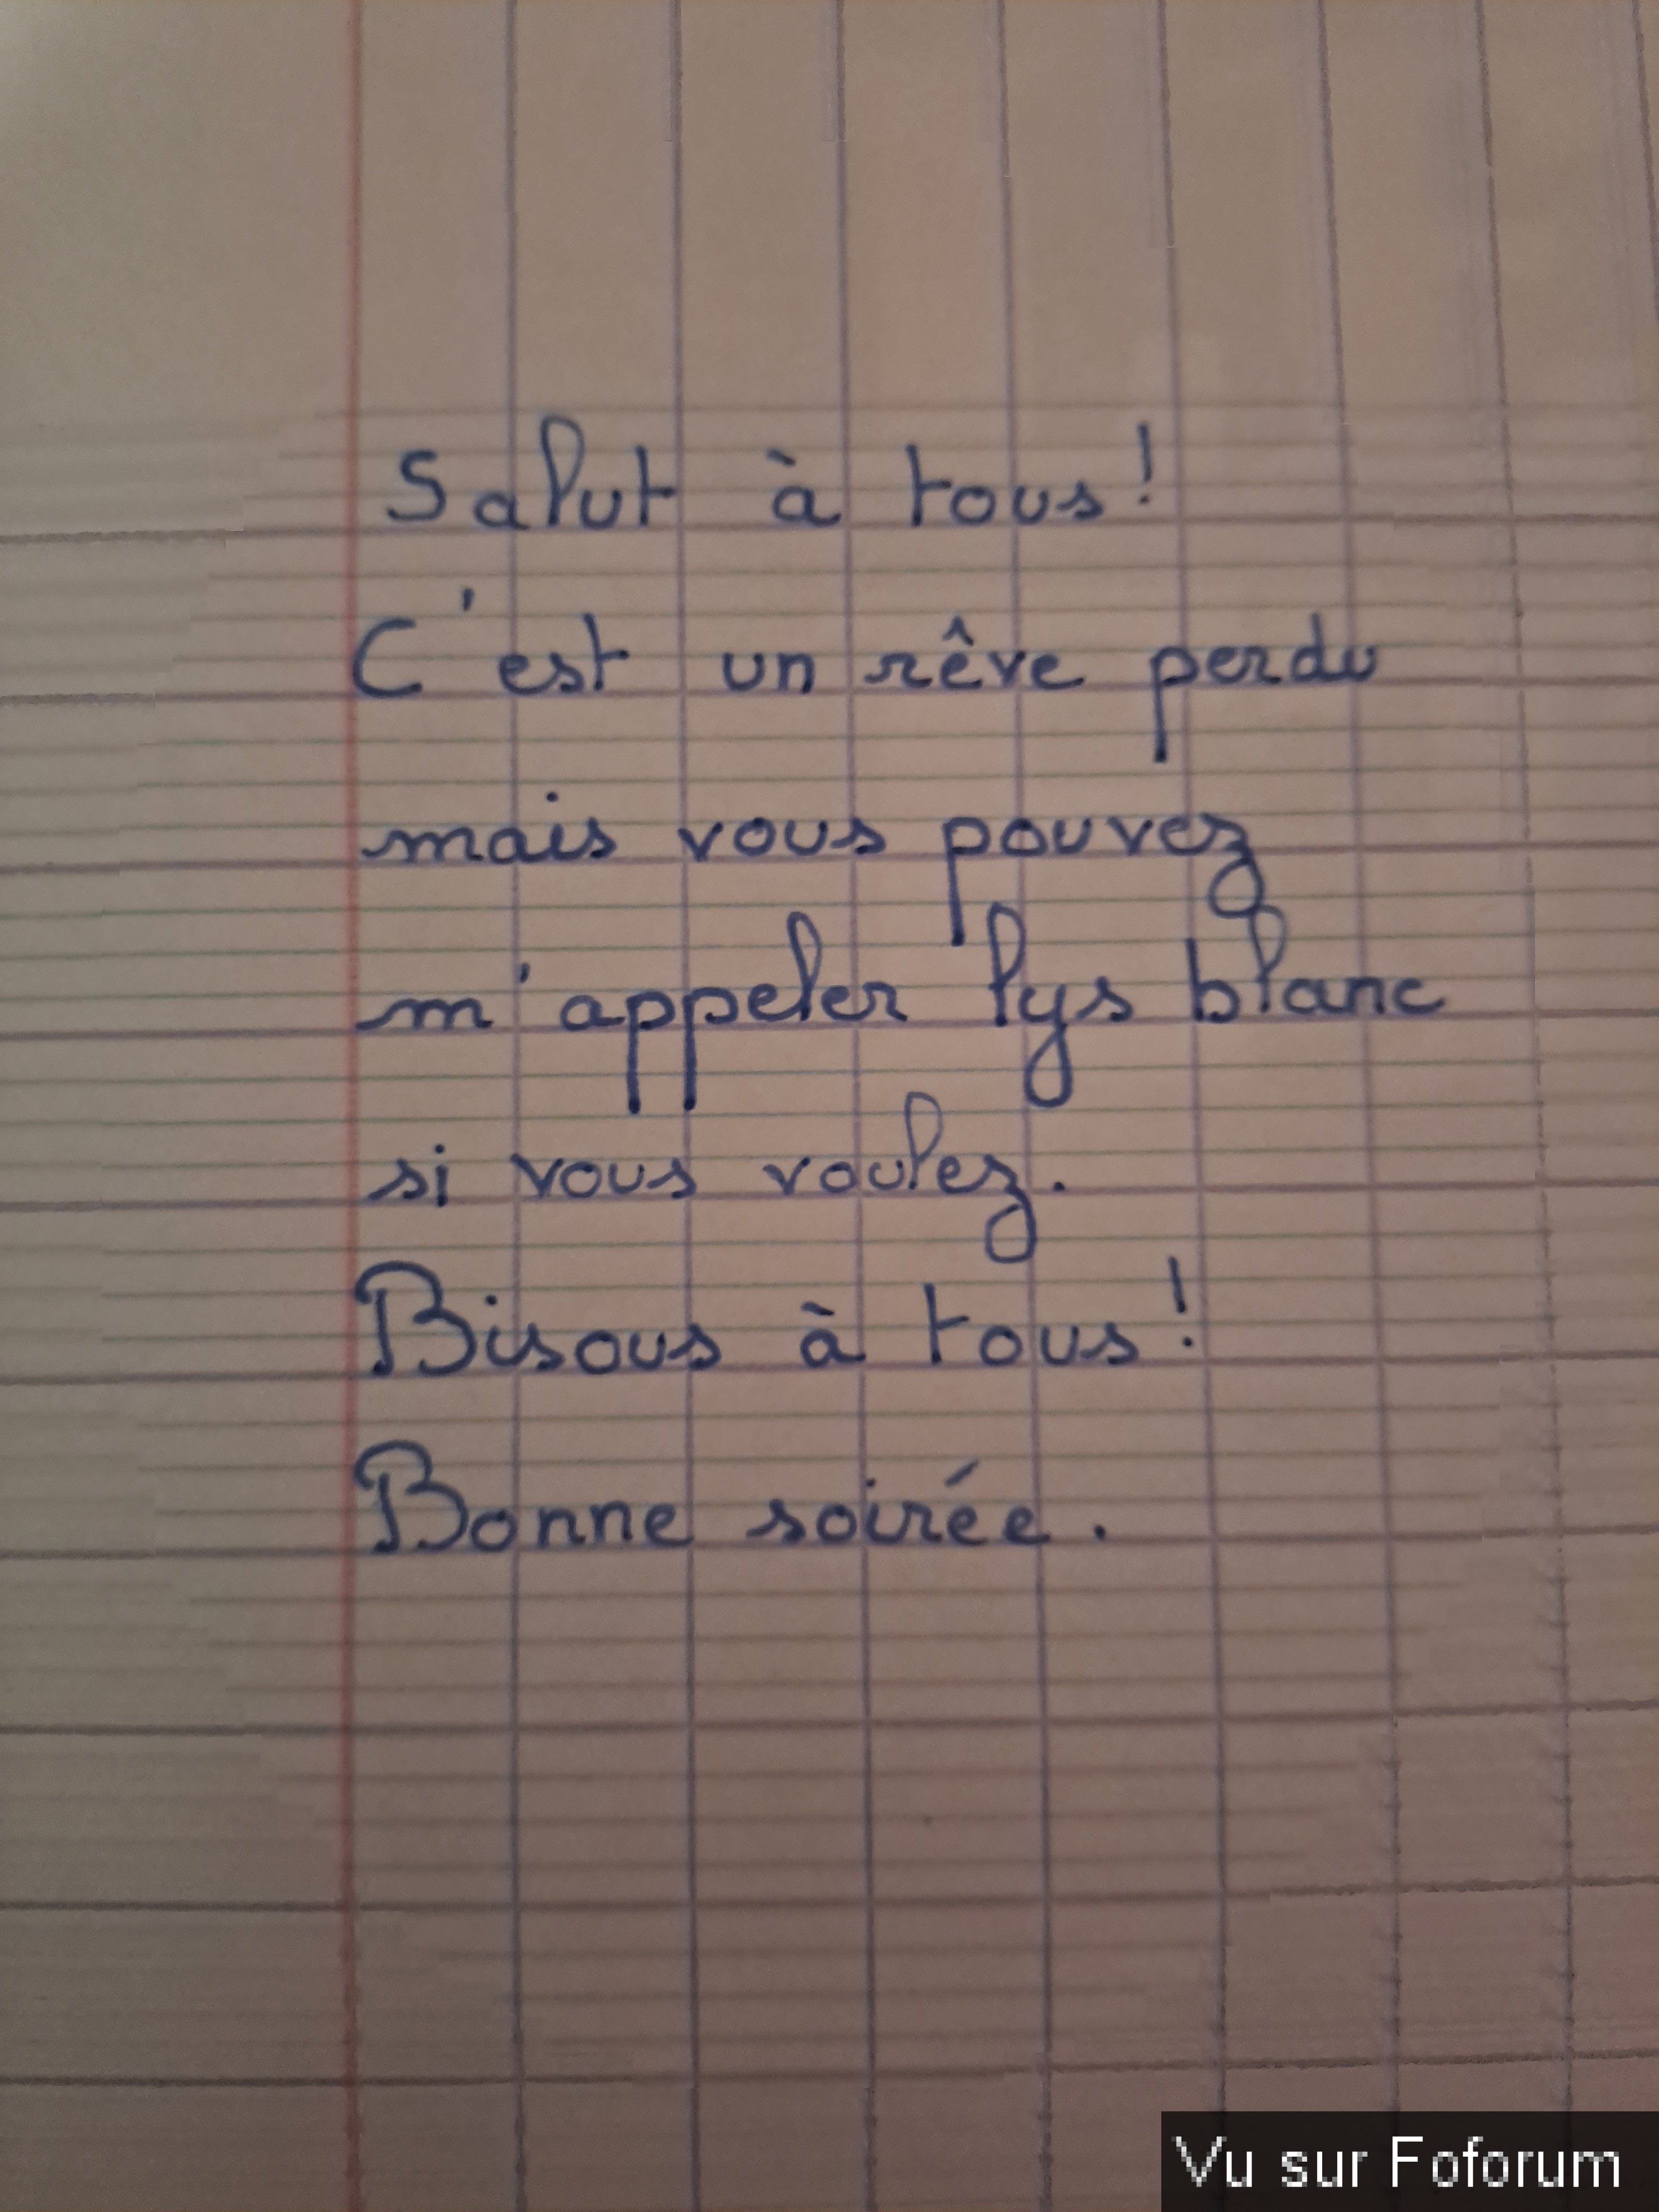 Salut à tous !
C'est un rêve perdu
mais vous pouvez
m'appeler lys blanc
si vous voulez.
Bisous à tous !
Bonne soirée.
Vu sur Foforum